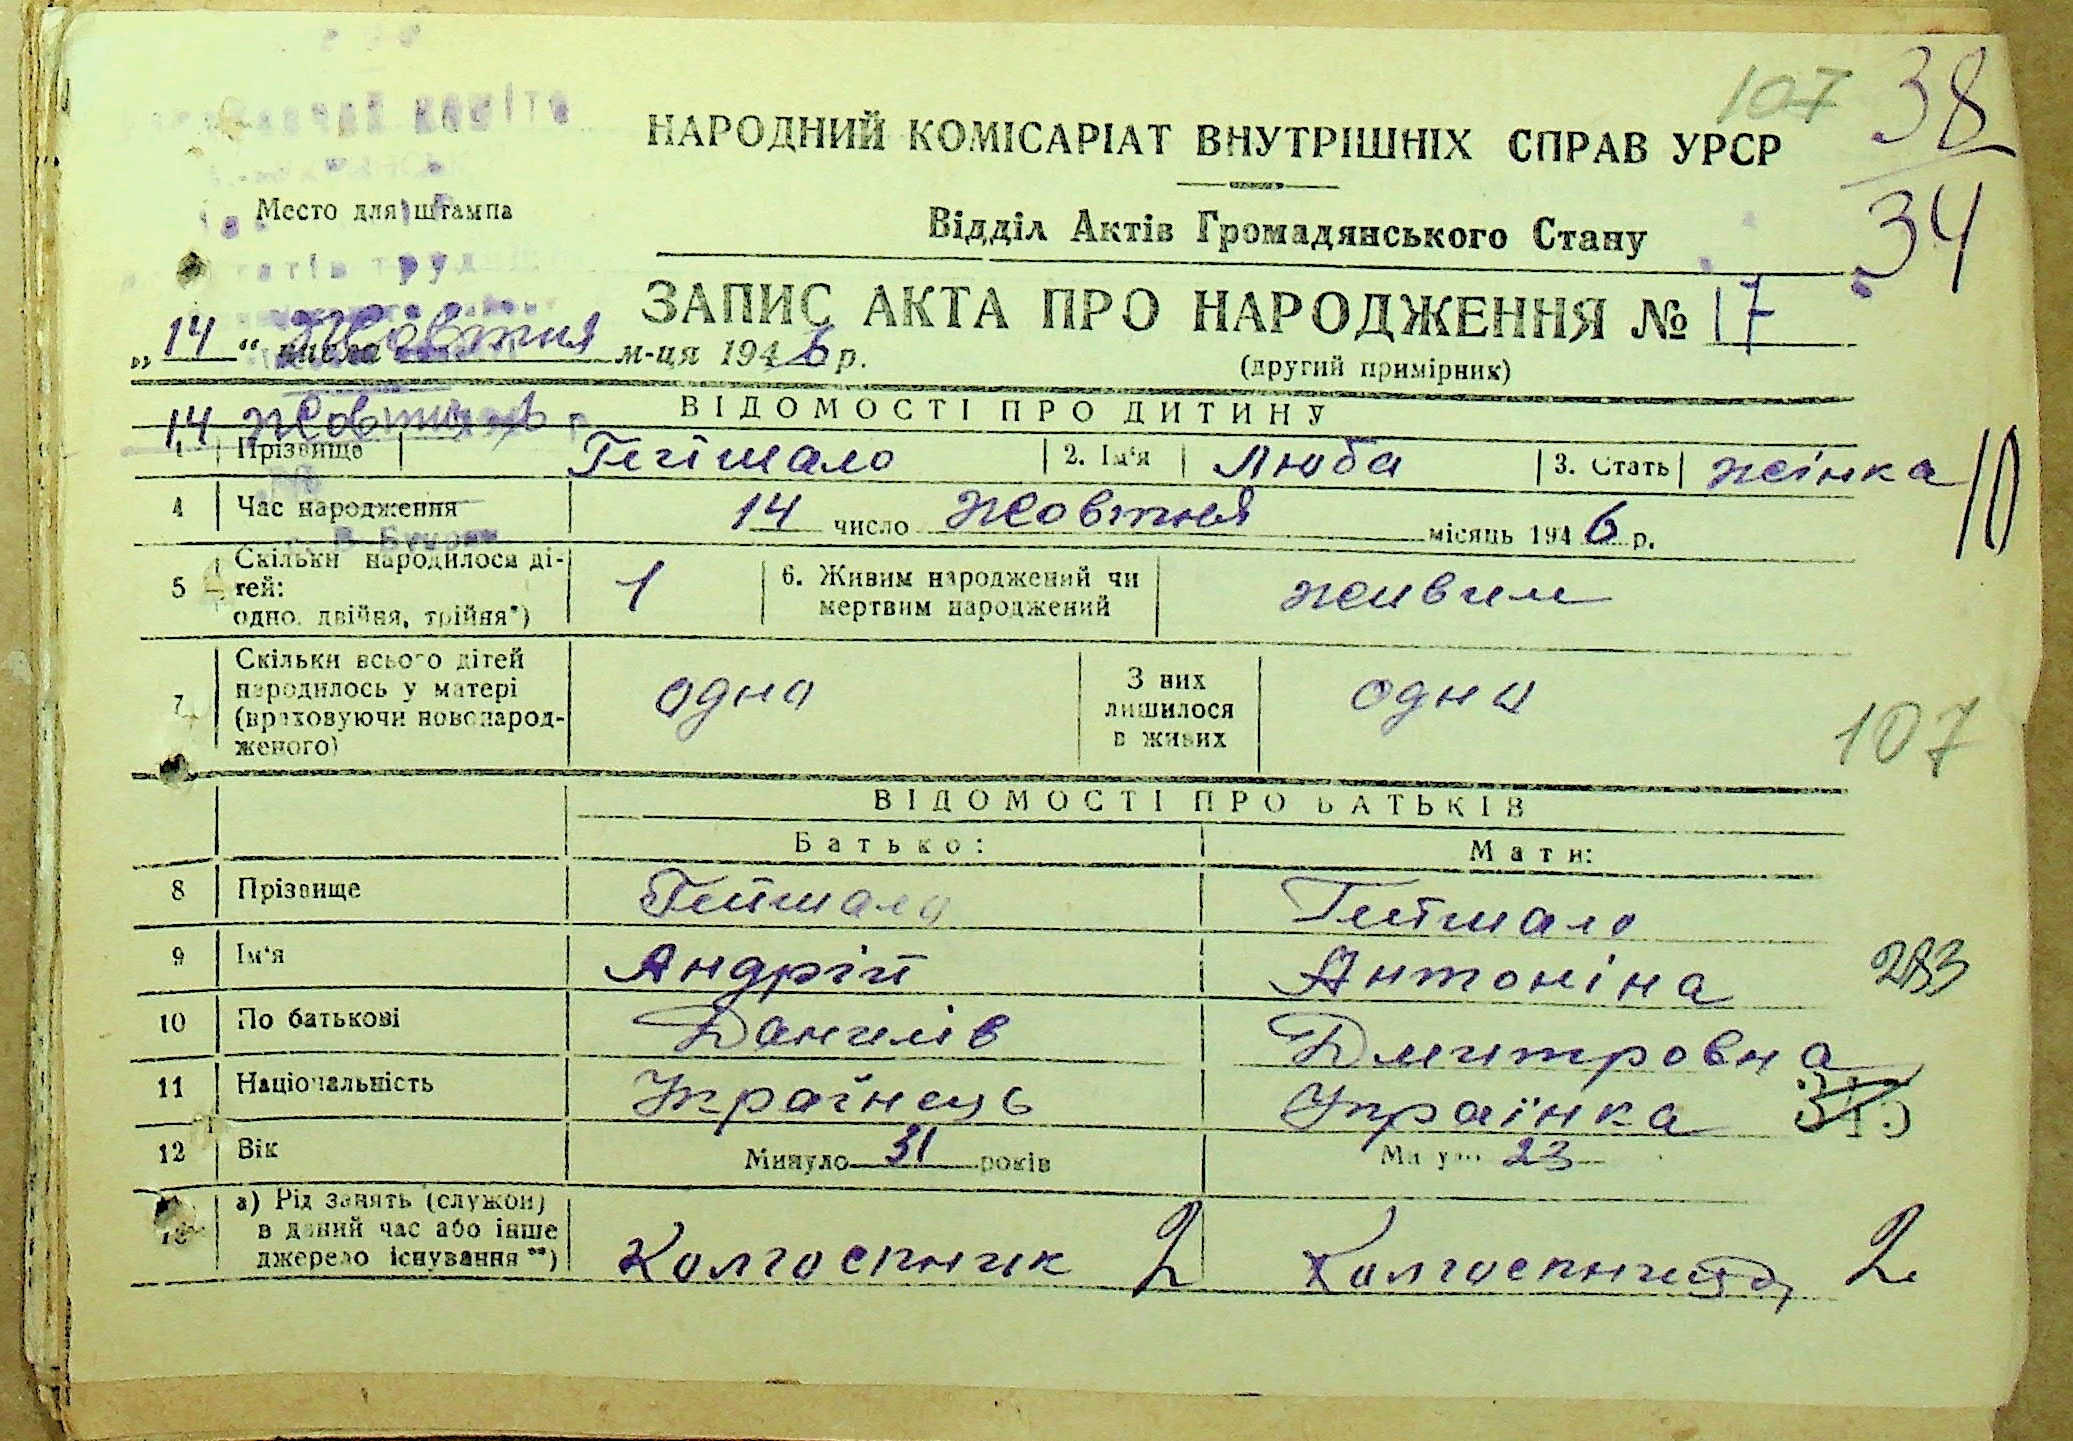 107 38
НАРОДНИЙ КОМІСАРІАТ ВНУТРІШНІХ СПРАВ УРСР
34
Место для штампа
Відділ Актів Громадянського Стану
ЗАПИС АКТА ПРО НАРОДЖЕННЯ № 17
„14“ числа Жовтня м-ця 1946 р.
(другий примірник)
14 Жовтня
ВІДОМОСТІ ПРО ДИТИНУ
1 Прізвище Гейшало 2. Ім'я Люба 3. Стать жінка
10
4 Час народження 14 число Жовтня місяць 1946 р.
5 Скільки народилося ді-
тей:
одно, двійня, трійня*) 1
6. Живим народжений чи
мертвим народжений живим
7 Скільки всього дітей
народилось у матері
(враховуючи новонарод-
женого) одна
З них
лишилося
в живих одна
107
ВІДОМОСТІ ПРО БАТЬКІВ
Батько: Мати:
8 Прізвище Гейшало Гейшало
9 Ім'я Андрій Антоніна 283
10 По батькові Данилів Дмитровна
11 Національність Українець Українка
12 Вік Минуло 31 років Минуло 23
13 а) Рід занять (служби)
в даний час або інше
джерело існування **) Колгоспник 2 Колгоспниця 2